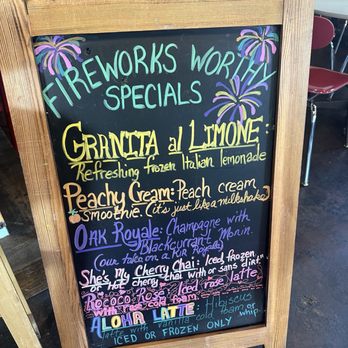 FIREWORKS WORTHY
SPECIALS
GRANITA al LIMONE
Refreshing frozen Italian lemonade
Peachy Cream: Peach cream
smoothie. (it's just like a milkshake)
OAK ROYALE: Champagne with
Blackcurrant Monin.
(our take on a KIR Royale)
She's My Cherry Chai: Iced, frozen
or hot cherry chai with or sans dirt"
Rococo Rose: Iced rose latte
with rose cold foam.
ALOHA LATTE: Hibiscus
latte with vanilla cold foam or whip
ICED OR FROZEN ONLY